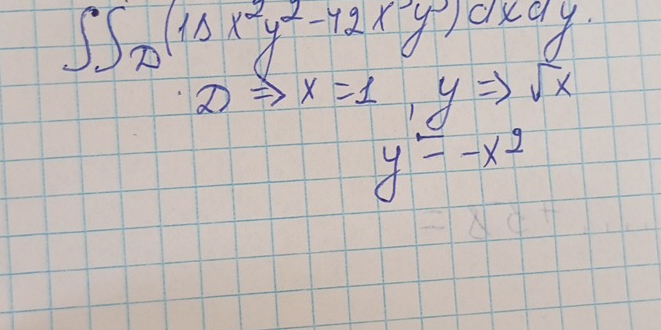 ∬_D (18x²y² - 42x³y³) dxdy.
D ⇒ x = 1, y ⇒ √x
y = -x²